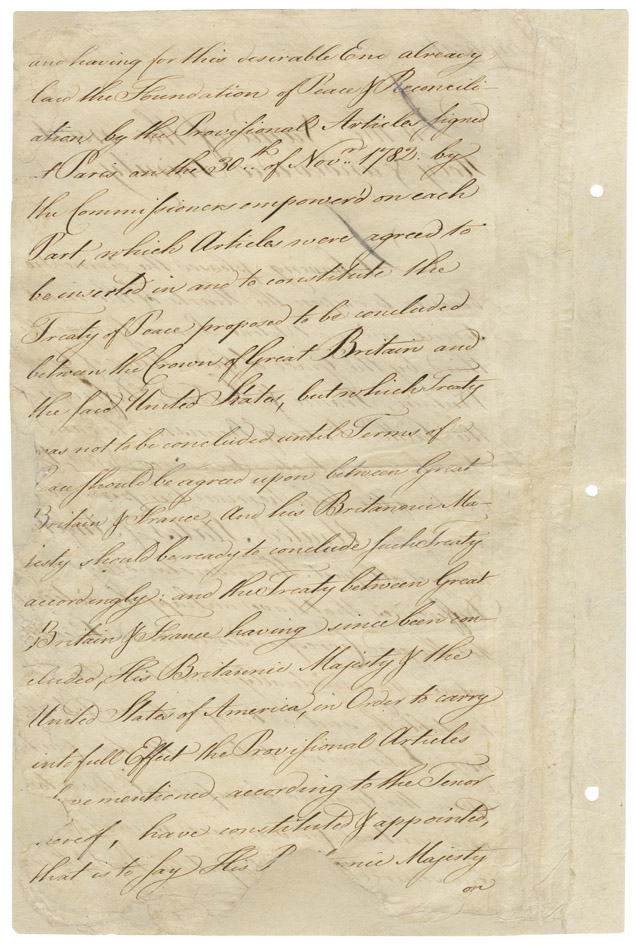 and having for this desirable End already
laid the Foundation of Peace & Reconcili-
ation by the Provisional Articles signed
at Paris on the 30.th of Nov.r 1782. by
the Commissioners empower'd on each
Part, which Articles were agreed to
be inserted in and to constitute the
Treaty of Peace proposed to be concluded
between the Crown of Great Britain and
the said United States, but which Treaty
was not to be concluded until Terms of
Peace should be agreed upon between Great
Britain & France, And his Britannic Ma-
jesty should be ready to conclude such Treaty
accordingly: and the Treaty between Great
Britain & France having since been con-
cluded, His Britannic Majesty & the
United States of America, in Order to carry
into full Effect the Provisional Articles
mentioned, according to the Tenor
have constituted & appointed,
that is to say His Majesty
on